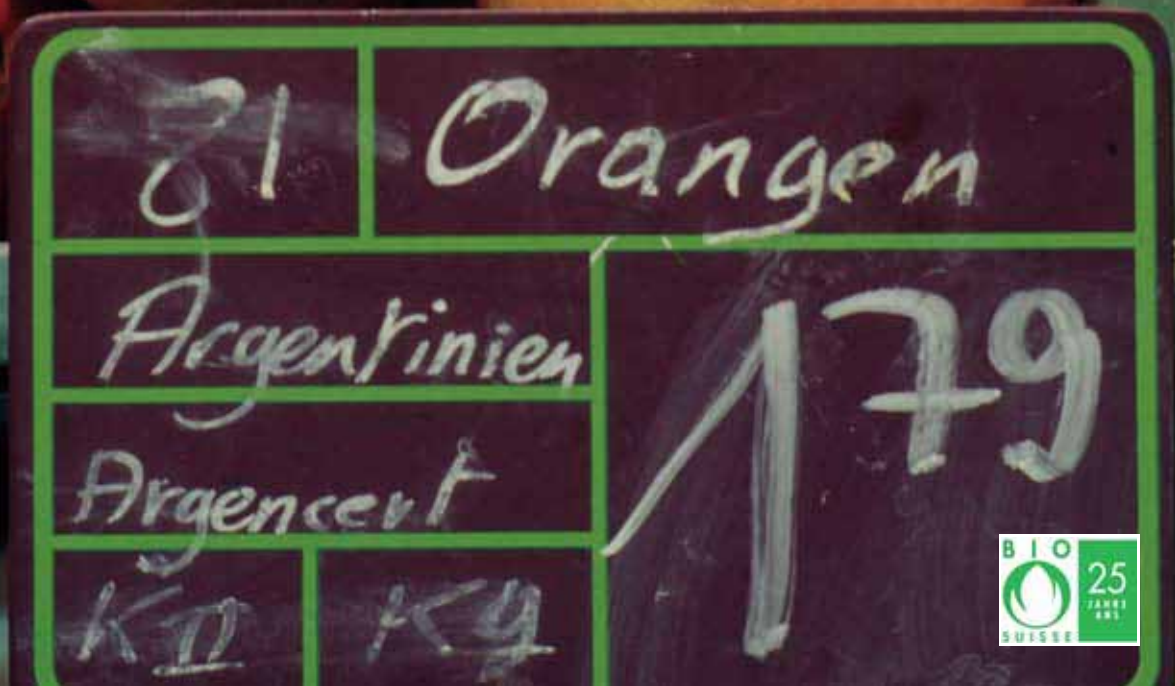 21 Orangen
Argentinien
179
Argencert
K II Kg
BIO
SUISSE
25
JAHRE
ANS